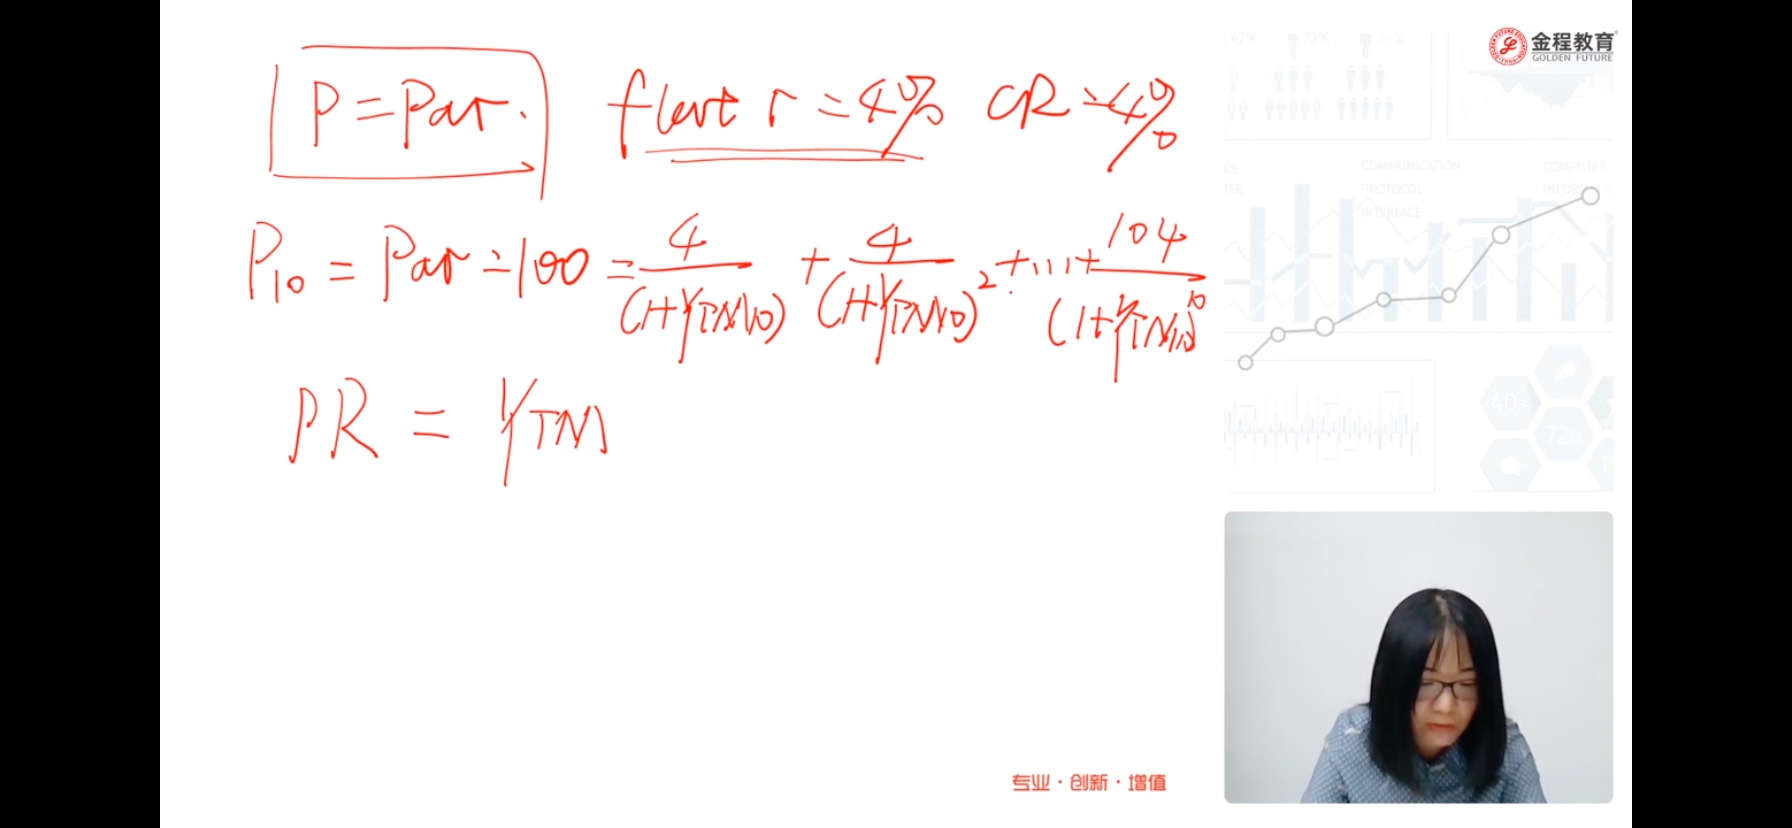 金程教育
GOLDEN FUTURE
P = Par.
flat r = 4% CR = 4%
P10 = Par = 100 = 4/(1+YTM10) + 4/(1+YTM10)^2 + ... + 104/(1+YTM10)^10
PR = YTM
47% 73%
COMMUNICATION
PROTOCOL
INTERFACE
COMPUTER
40%
72%
专业·创新·增值